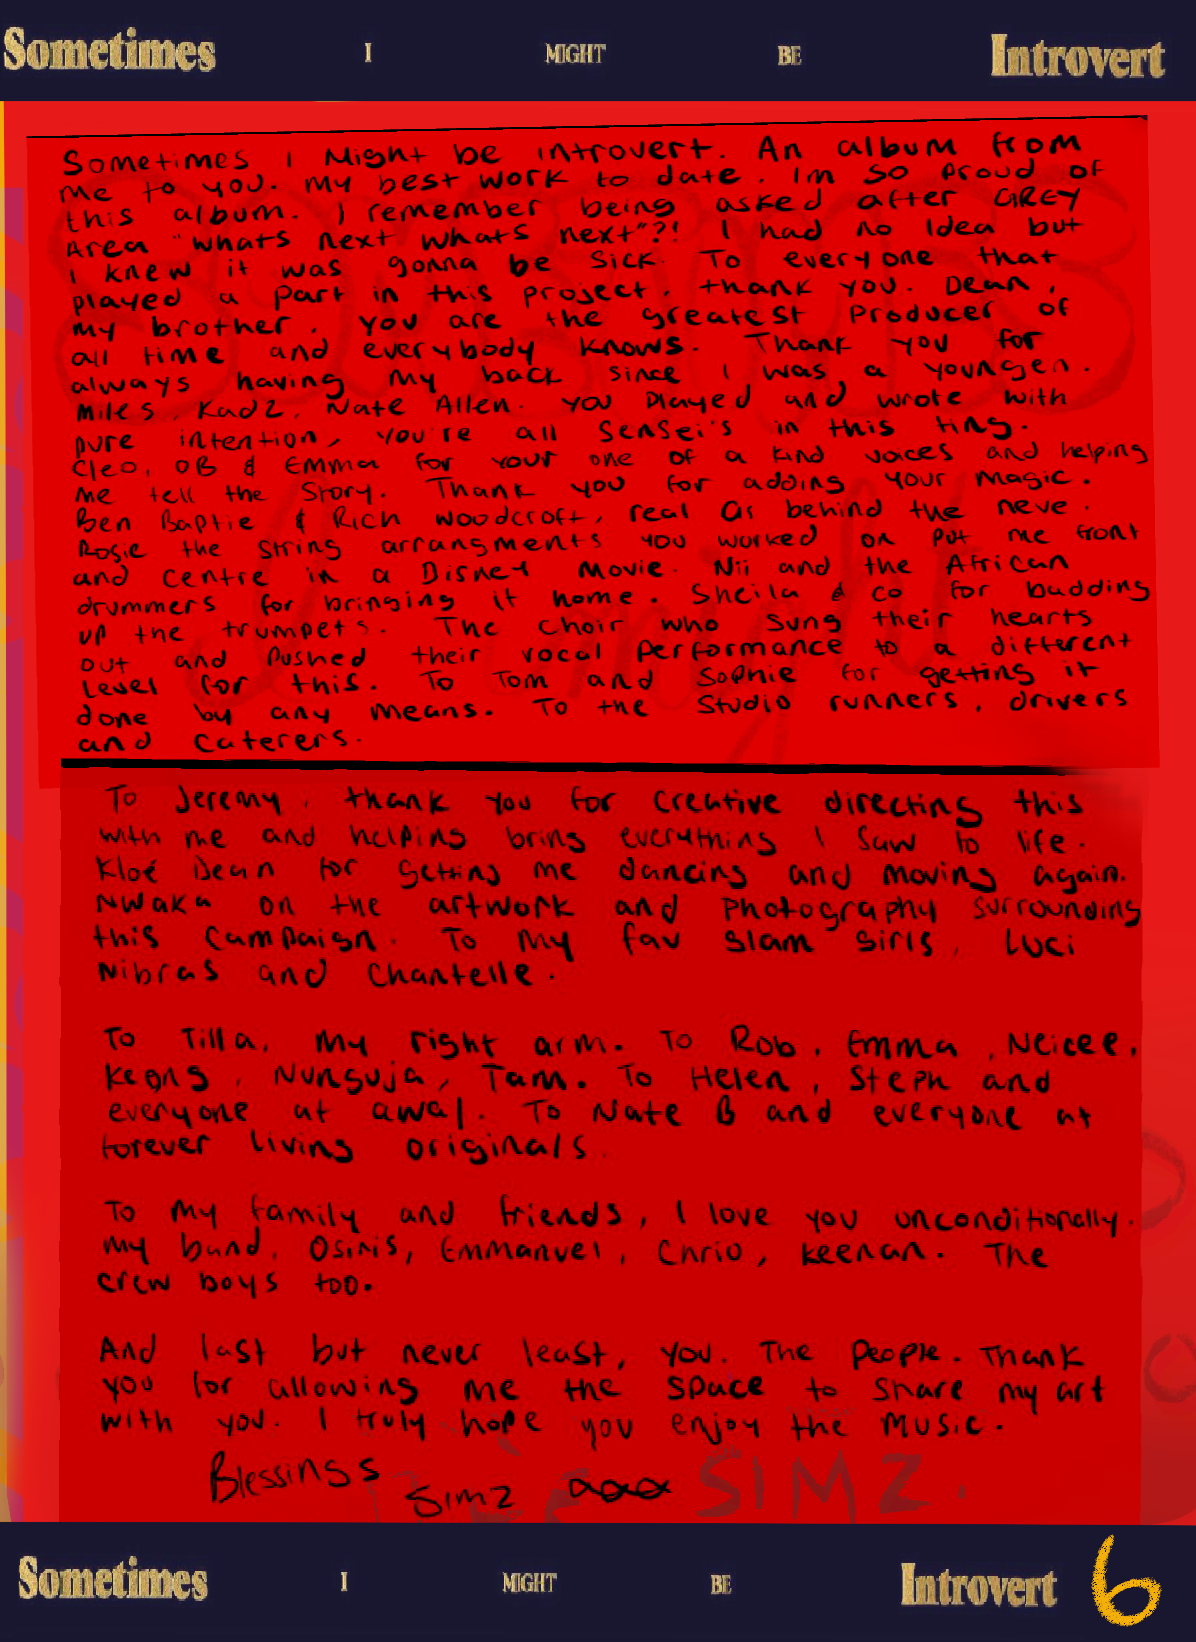 Sometimes I MIGHT BE Introvert
Sometimes I Might be introvert. An album from
me to you. My best work to date. Im so proud of
this album. I remember being asked after GREY
Area "whats next whats next"?! I had no idea but
I knew it was gonna be sick. To everyone that
played a part in this project, thank you. Dean,
my brother. You are the greatest producer of
all time and everybody knows. Thank you for
always having my back since I was a youngen.
Miles, Kadz, Nate Allen. You played and wrote with
pure intention, you're all sensei's in this ting.
Cleo, OB & Emma for your one of a kind voices and helping
me tell the story. Thank you for adding your magic.
Ben Baptie & Rich Woodcroft, real Gs behind the neve.
Rosie the string arrangments you worked on put me front
and centre in a Disney movie. Nii and the African
drummers for bringing it home. Sheila & co for budding
up the trumpets. The choir who sung their hearts
out and pushed their vocal performance to a different
level for this. To Tom and Sophie for getting it
done by any means. To the studio runners, drivers
and caterers.
To Jeremy, thank you for creative directing this
with me and helping bring everything I saw to life.
Kloé Dean for getting me dancing and moving again.
Nwaka on the artwork and photography surrounding
this campaign. To my fav glam girls, Luci
Nibras and Chantelle.
To Tilla, my right arm. To Rob, Emma, Neicee,
Keons, Nunguja, Tam. To Helen, Steph and
everyone at awal. To Nate B and everyone at
forever living originals.
To my family and friends, I love you unconditionally.
My band, Osiris, Emmanuel, Chrio, Keenan. The
crew boys too.
And last but never least, you. The people. Thank
you for allowing me the space to share my art
with you. I truly hope you enjoy the music.
Blessings
Simz SIMZ.
Sometimes I MIGHT BE Introvert 6